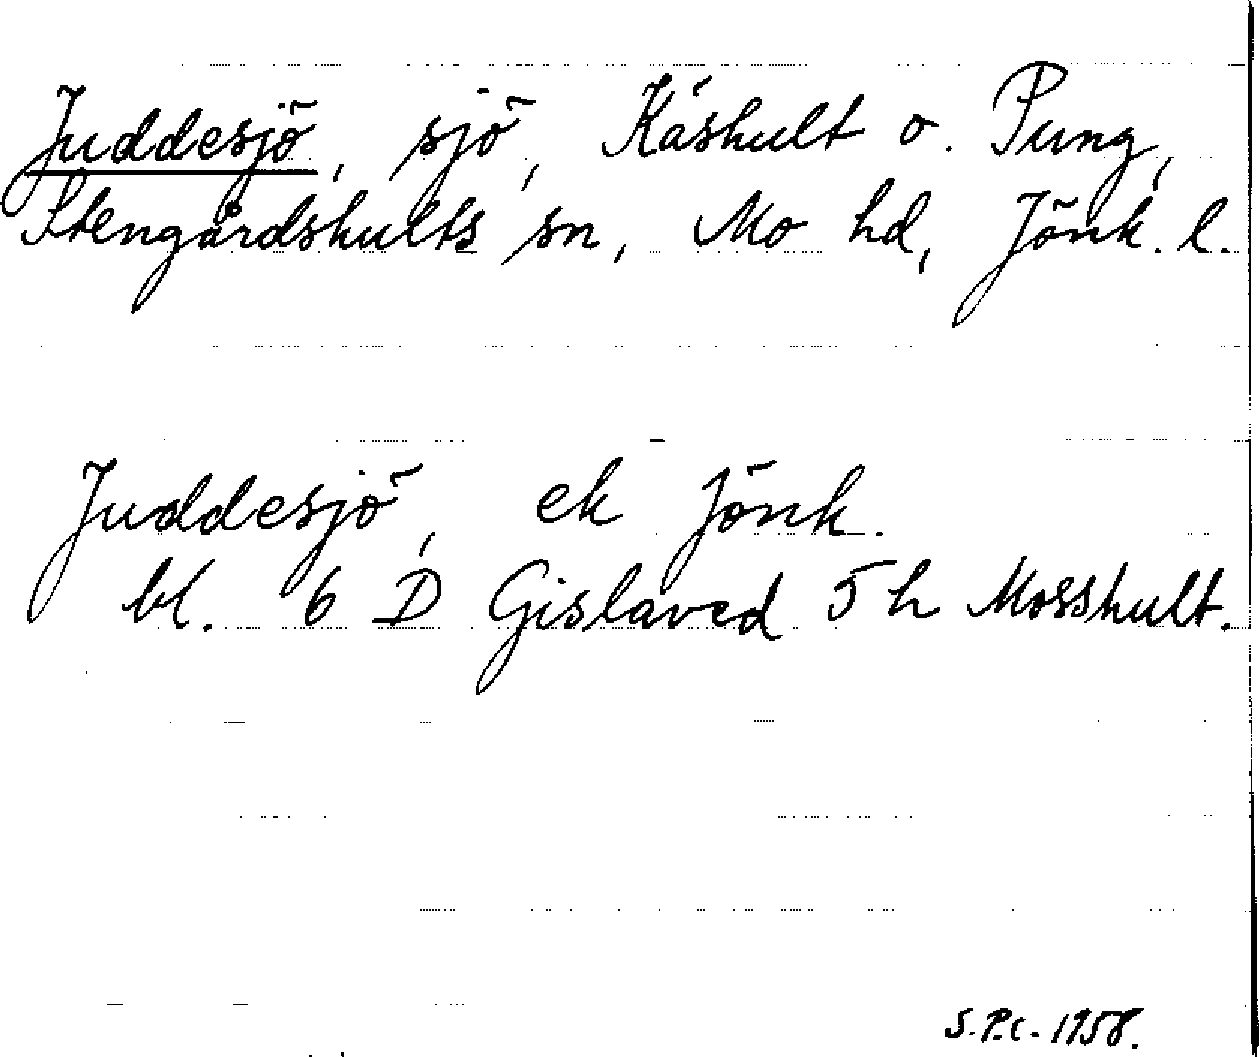 Juddesjö, sjö, Kåshult o. Pung,
Stengårdshults sn, Mo hd, Jönk. l.
Juddesjö, ek Jönk.
bl. 6 D Gislaved 5 h Mosshult.
S.P.C. 1958.